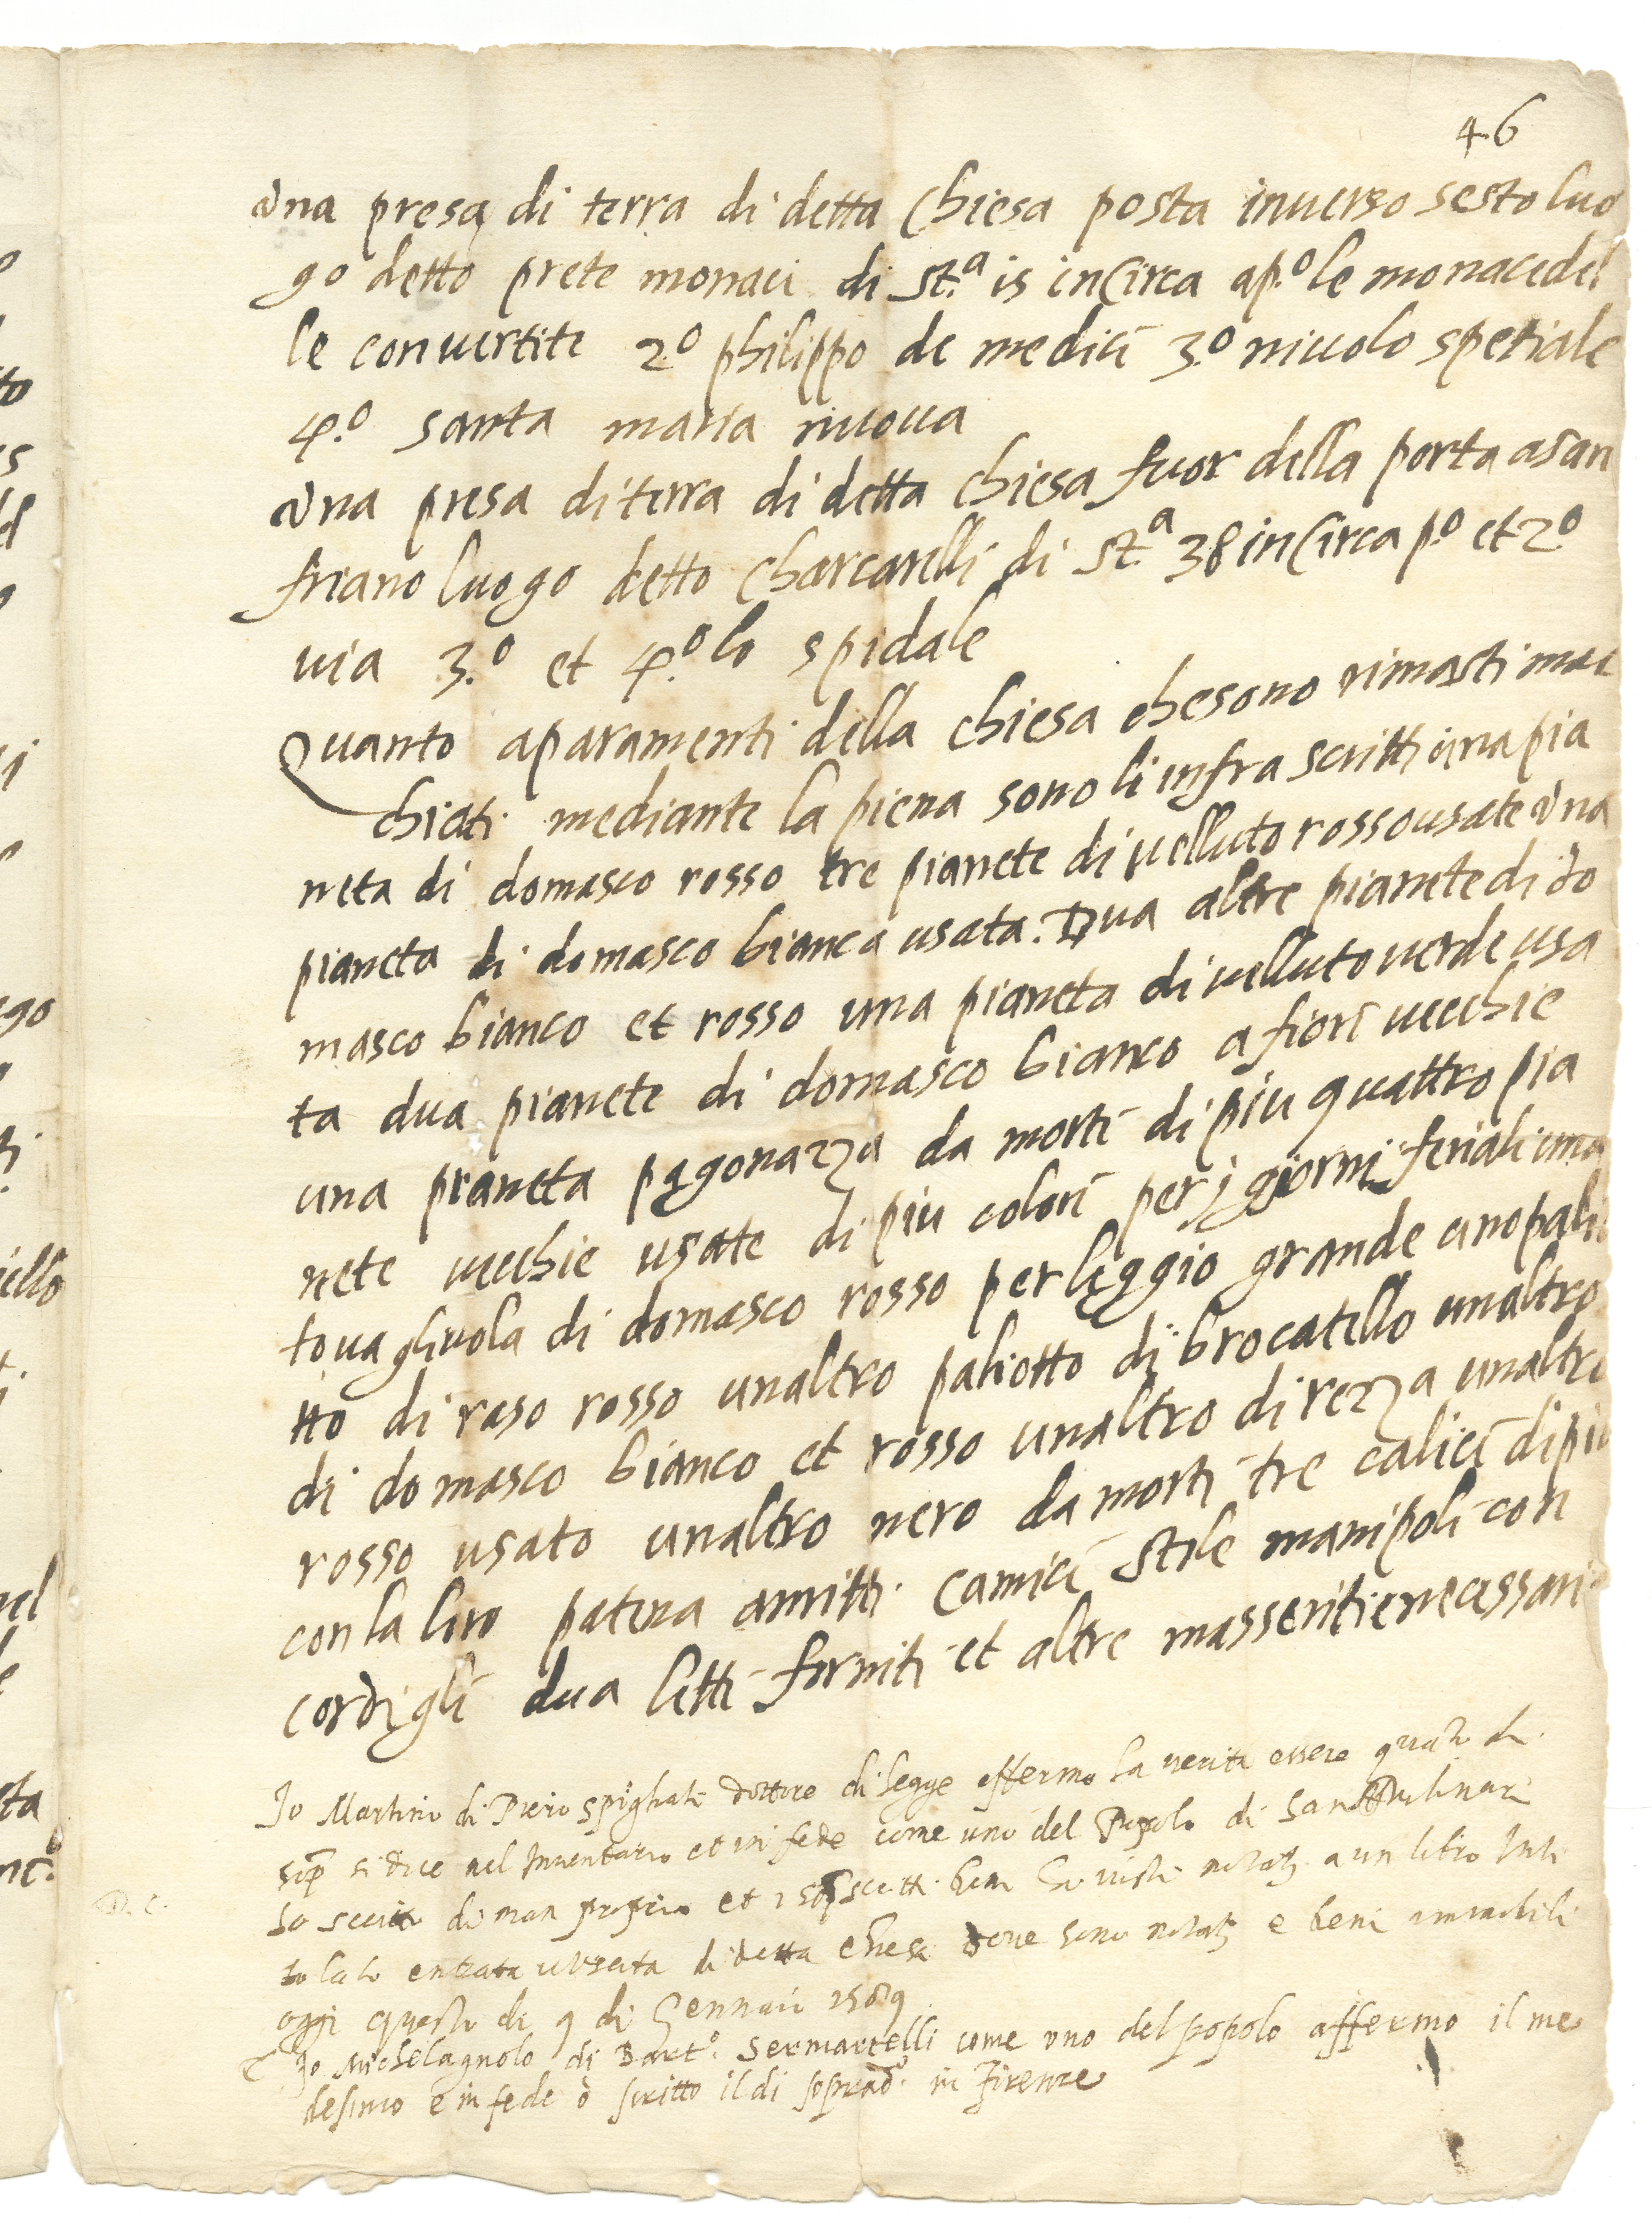 46
una presa di terra di detta chiesa posta inuerso sesto luo
go detto prete monaci di st.ª 15 incirca ap.º le monacedel
le conuertite 2º philippo de medici 3.º niccolo spetiale
4.º santa maria nuoua
una presa di terra di detta chiesa fuor della porta asan
friano luogo detto charcarelli di st.ª 38 incirca p.º et 2.º
uia 3.º et 4.º lo spidale
Quanto aparamenti della chiesa chesono rimasti mac
chiati mediante la piena sono li infra scritti una pia
neta di domasco rosso tre pianete di uelluto rosso usate una
pianeta di domasco bianca usata. Dua altre pianete di do
masco bianco et rosso una pianeta di uelluto uerde usa
ta dua pianete di domasco bianco a fiori uecchie
una pianeta pagonazza da morti di piu quattro pia
nete uecchie usate di piu colori per j giorni feriali una
touagliuola di domasco rosso per leggio grande uno palio
tto di raso rosso unaltro paliotto di brocatello unaltro
di domasco bianco et rosso unaltro di rezza unaltro
rosso usato unaltro nero da morti tre calici di piu
con la loro patena amitti camici stole manipoli con
cordigli dua letti forniti et altre masseritie necessarie
Io Martino di Piero spigliati dottore di legge affermo la uerita essere quanto di
sop.ª si dice nel Inuentario et in fede come uno del Popolo di Santo
ho scritto di man propria et i sop.ª scritti beni ho uisti notati a un libro Inti
tolato entrata uscita di detta chiesa doue sono notati e beni immobili
oggi questo di 9 di Gennaio 1589
Io Michelagnolo di Bart.º Sermartelli come uno del popolo affermo il me
desimo e in fede ò scritto il di soprad.º in Firenze